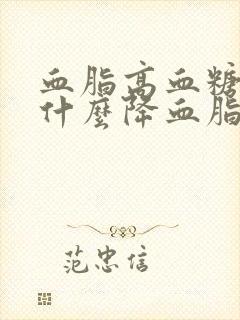 血脂高血糖
什麼降血脂
范忠信